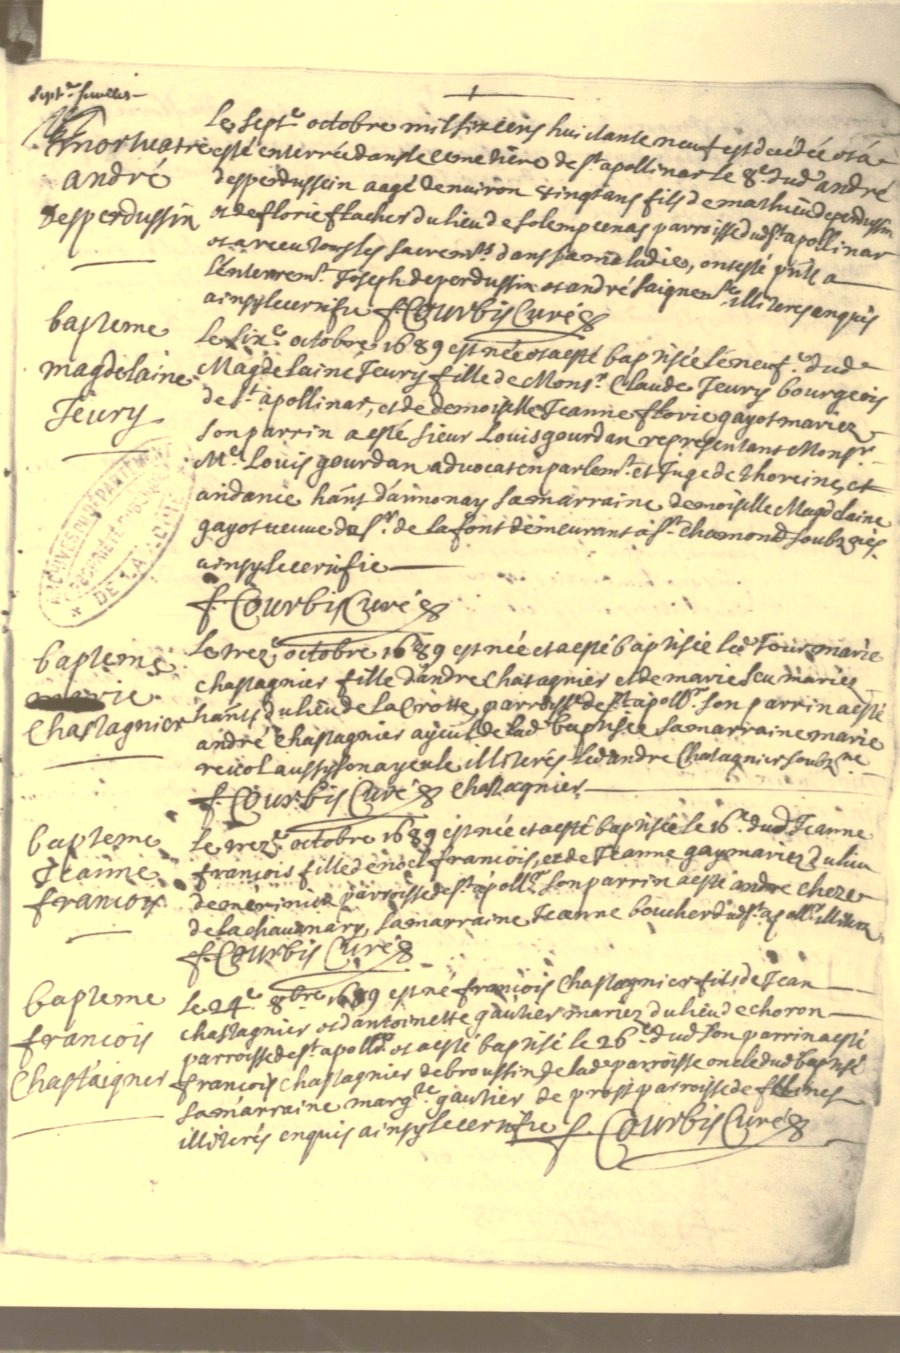 sept.e feuillet
Mortuaire
andré
desperdussin
Le sept.e octobre mil six cens huictante neuf est décédé et a
esté enterré dans le cemetière de s.t apollinar le 8.e dud. andré
desperdussin aagé denuiron vingt ans fils de mathieu deperdussin
et de florie flacher du lieu de solempcenas parroisse dud. s.t apollinar
et a receu tous les sacrem.ts dans sa maladie, ont esté pnts a
l'enterrem.t Joseph deperdussin et andré saignen illiteres enquis
ainsy le certifie f. Courbis Curé
bapteme
magdelaine
Jeury
Le six.e octobre 1689 est née et a esté baptisée le neuf.e dud.
Magdelaine Jeury fille de Mons.r Claude Jeury bourgeois
de s.t apollinar, et de demoiselle Jeanne florie gayot mariez
son parrin a esté sieur Louis gourdan representant Mons.r
M.e Louis gourdan advocat en parlem.t et Juge de Thoreine, et
andance hants d'annonay sa marraine demoiselle Magdelaine
gayot veuve du s.r de la font demeurant à s.t chamond soubzsignés
ainsy le certifie
f. Courbis Curé
ARCHIVES DÉPARTEMENTALES
PROPRIÉTÉ PUBLIQUE
* DE LA LOIRE *
bapteme
marie
Chastagnier
Le trez.e octobre 1689 est née et a esté baptisée led. Jour marie
chastagnier fille d'andre Chatagnier et de marie seu mariez
hants du lieu de la Crotte, parroisse de s.t apoll.r son parrin a esté
andré Chastagnier ayeul de lad. baptisée sa marraine marie
reviol aussy son ayeule illiterés led. andre Chatagnier soubz.ne
f. Courbis Curé chastagnier
bapteme
Jeanne
francois
Le trez.e octobre 1689 est née et a esté baptisée le 16.e dud. Jeanne
françois fille de noel francois, et de Jeanne gay mariez du lieu
de parroisse de s.t apoll.r son parrin a esté andre cheze
de la chaumary, sa marraine Jeanne boucher dud. s.t apoll.r
f. Courbis Curé
bapteme
francois
Chastaigner
Le 24.e 8bre 1689 est né francois Chastagnier fils de Jean
chastagnier et d'antoinette gaultier mariez du lieu de choron
parroisse de s.t apoll.r et a esté baptisé le 26.e dud. son parrin a esté
francois chastagnier de broussin de lad. parroisse oncle dud. baptisé
sa marraine marg.te gaultier de prost parroisse de
illiterés enquis ainsy le certifie f. Courbis Curé